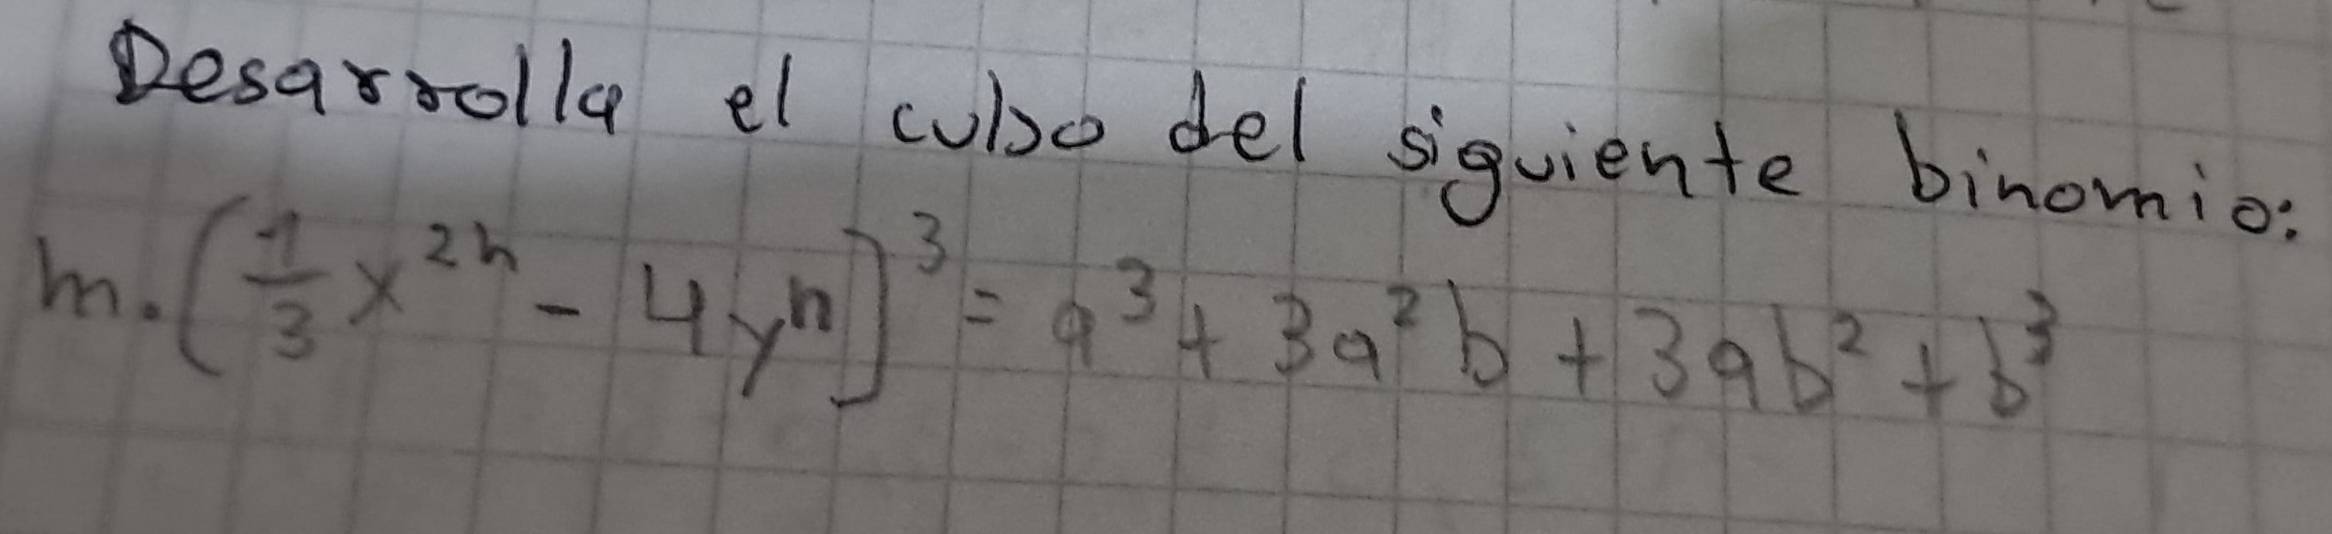 Desarrolla el cubo del siguiente binomio:
m. (1/3 x^2n - 4y^n)^3 = a^3 + 3a^2b + 3ab^2 + b^3